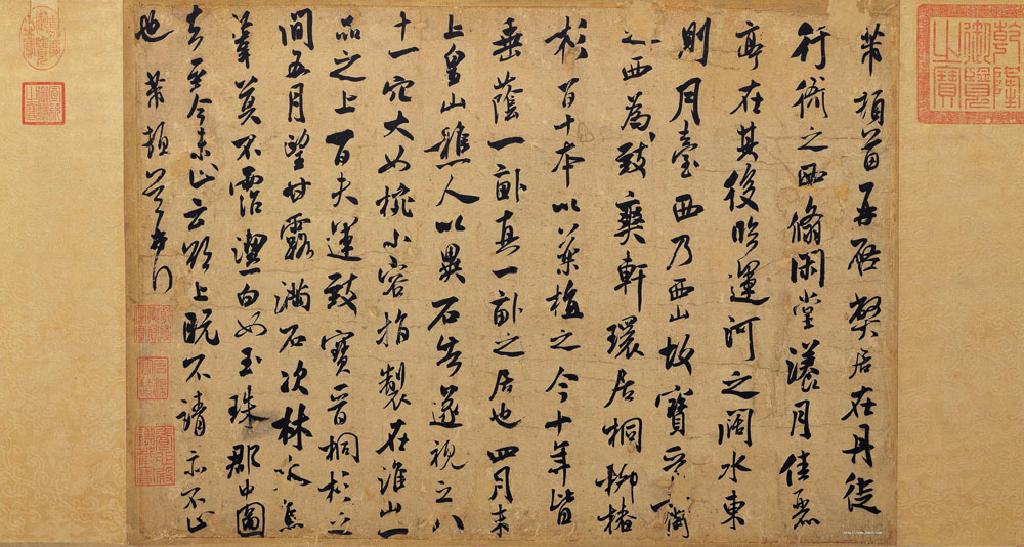 芾頓首再啓弊居在丹徒
行衙之西翛閑堂漾月佳麗
亭在其後臨運河之闊水東
則月臺西乃西山故寶晉齋
之西為致爽軒環居桐柳椿
杉百十本以藥植之今十年皆
垂蔭一畝真一畝之居也四月末
上皇山樵人以異石告遂視之八
十一穴大如椀小容指製在淮山一
品之上百夫運致寶晉桐杉之
間五月望甘露滿石次林木焦
葦莫不霑潔白如玉珠郡中圖
去至今未止云欲上既不請亦不止
也芾頓首
乾隆御覽之寶